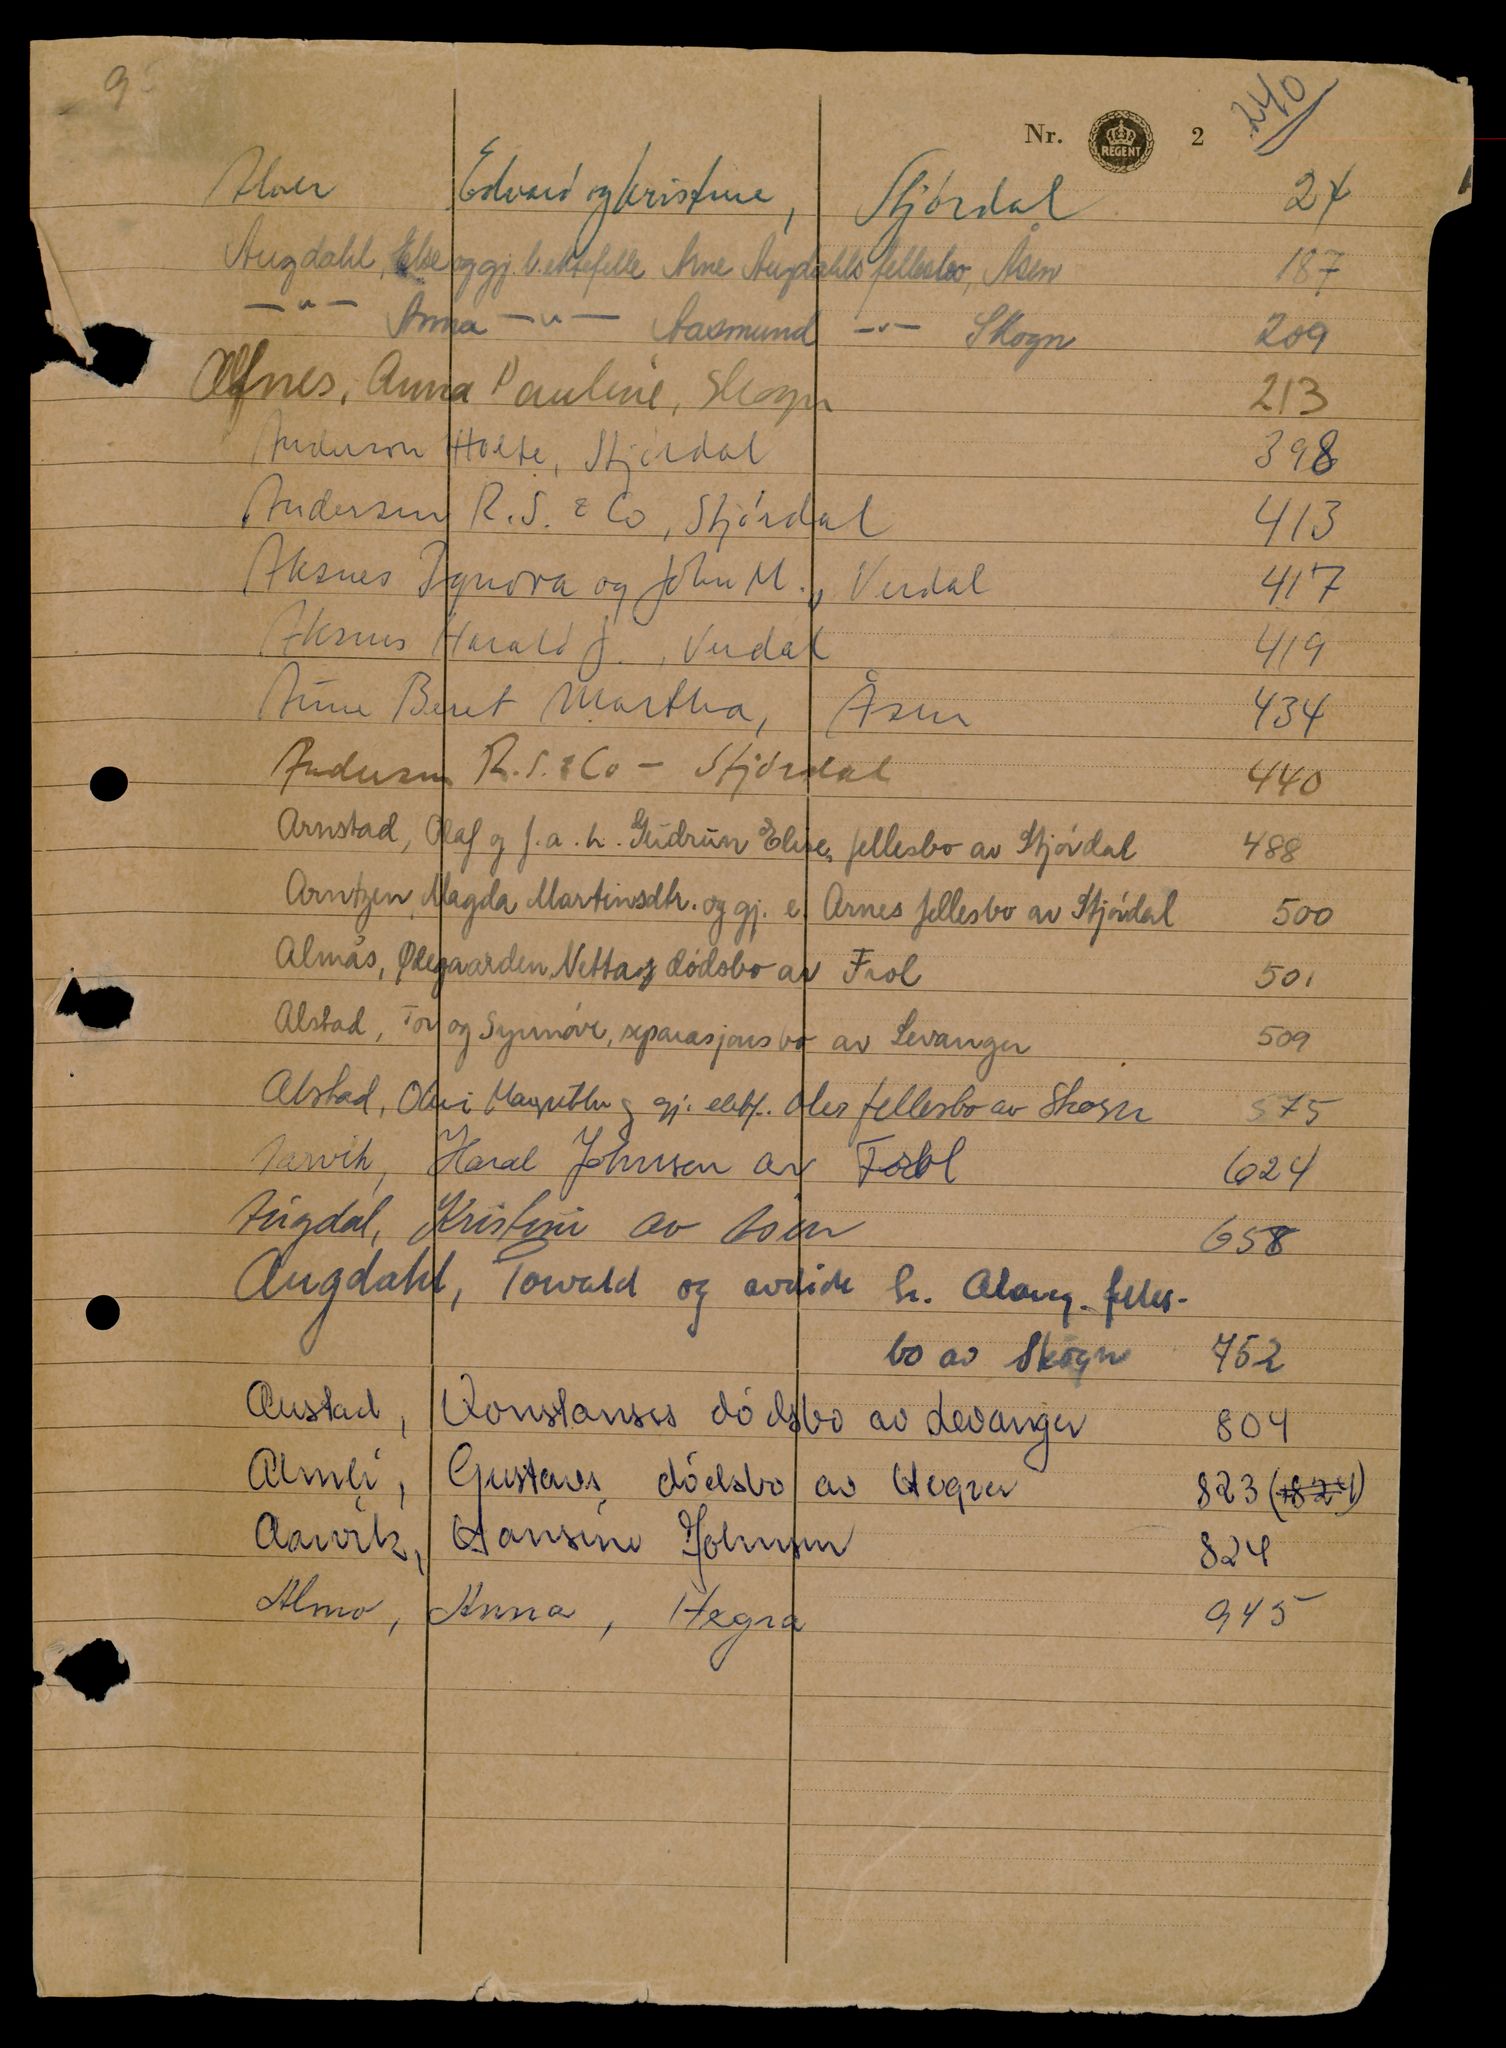 240
Nr. REGENT 2
Edvard og Kristine, Stjórdal 24
Augdahl, Else og gj. l. ektefelle Arne Augdahls fellesbo, Åsen 187
—"— Anna —"— Aasmund —"— Skogn 209
Anna Pauline, Skogn 213
Anderson Holte, Stjórdal 398
Andersen R.S. & Co, Stjórdal 413
Aksnes og John M., Verdal 417
Aksnes Harald J., Verdal 419
Aune Beret Martha, Åsen 434
Andersen R.S. & Co — Stjórdal 440
Arnstad, Olaf og f.a.h. Gudrun Elise, fellesbo av Stjórdal 488
Arntzen, Magda Martinsdtr. og gj. e. Arnes fellesbo av Stjórdal 500
Almås, Ødegaarden, Nettas dódsbo av Frol 501
Alstad, Tor og Synnóve, separasjonsbo av Levanger 509
Alstad, og gj. ektf. Oles fellesbo av Skogn 575
Aarvik, Johnsen av 624
Augdal, Kristine av Åsen 658
Augdahl, Torvald og avdöde h. felles-
bo av Skogn 752
Austad, Konstanses dódsbo av Levanger 804
Almli, Gustavs dódsbo av Hegra 823 (824)
Aarvik, Hansine Johnsen 824
Almo, Anna, Hegra 945